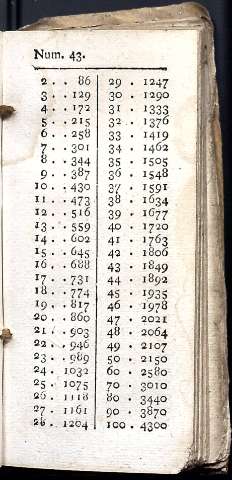 Num. 43.
2 . . 86
3 . . 129
4 . . 172
5 . . 215
6 . . 258
7 . . 301
8 . . 344
9 . . 387
10 . . 430
11 . . 473
12 . . 516
13 . . 559
14 . . 602
15 . . 645
16 . . 688
17 . . 731
18 . . 774
19 . . 817
20 . . 860
21 . . 903
22 . . 946
23 . . 989
24 . 1032
25 . 1075
26 . 1118
27 . 1161
28 . 1204
29 . 1247
30 . 1290
31 . 1333
32 . 1376
33 . 1419
34 . 1462
35 . 1505
36 . 1548
37 . 1591
38 . 1634
39 . 1677
40 . 1720
41 . 1763
42 . 1806
43 . 1849
44 . 1892
45 . 1935
46 . 1978
47 . 2021
48 . 2064
49 . 2107
50 . 2150
60 . 2580
70 . 3010
80 . 3440
90 . 3870
100 . 4300